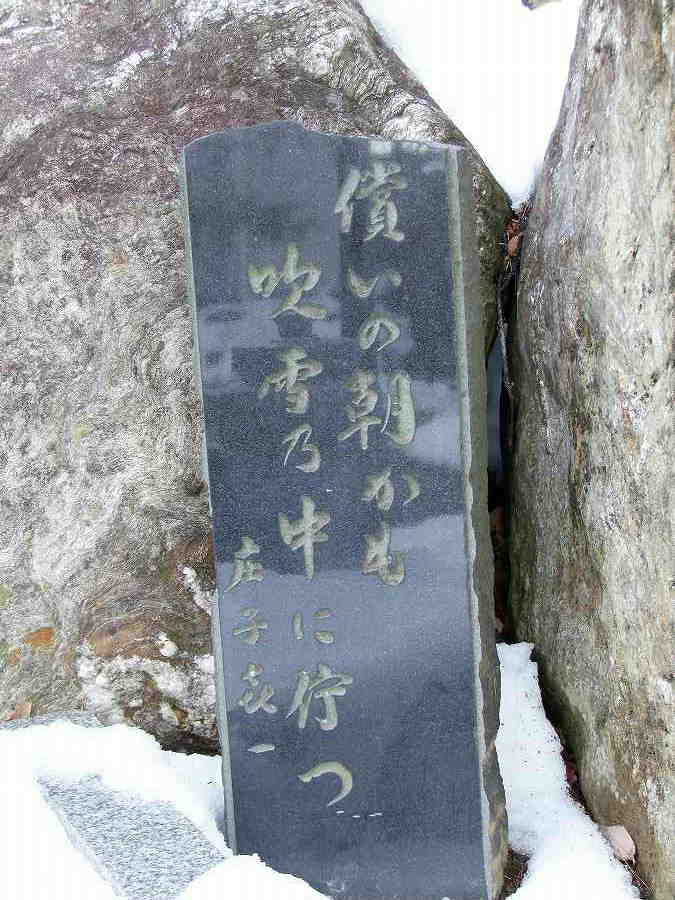 償いの朝かも
吹雪乃中に佇つ
庄子喜一